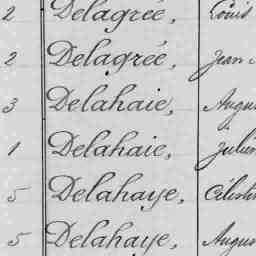 2 Delagrée, Louis
2 Delagrée, Jean
3 Delahaie, Augu
1 Delahaie, Julien
5 Delahaye, Célestin
5 Delahaye, Augus